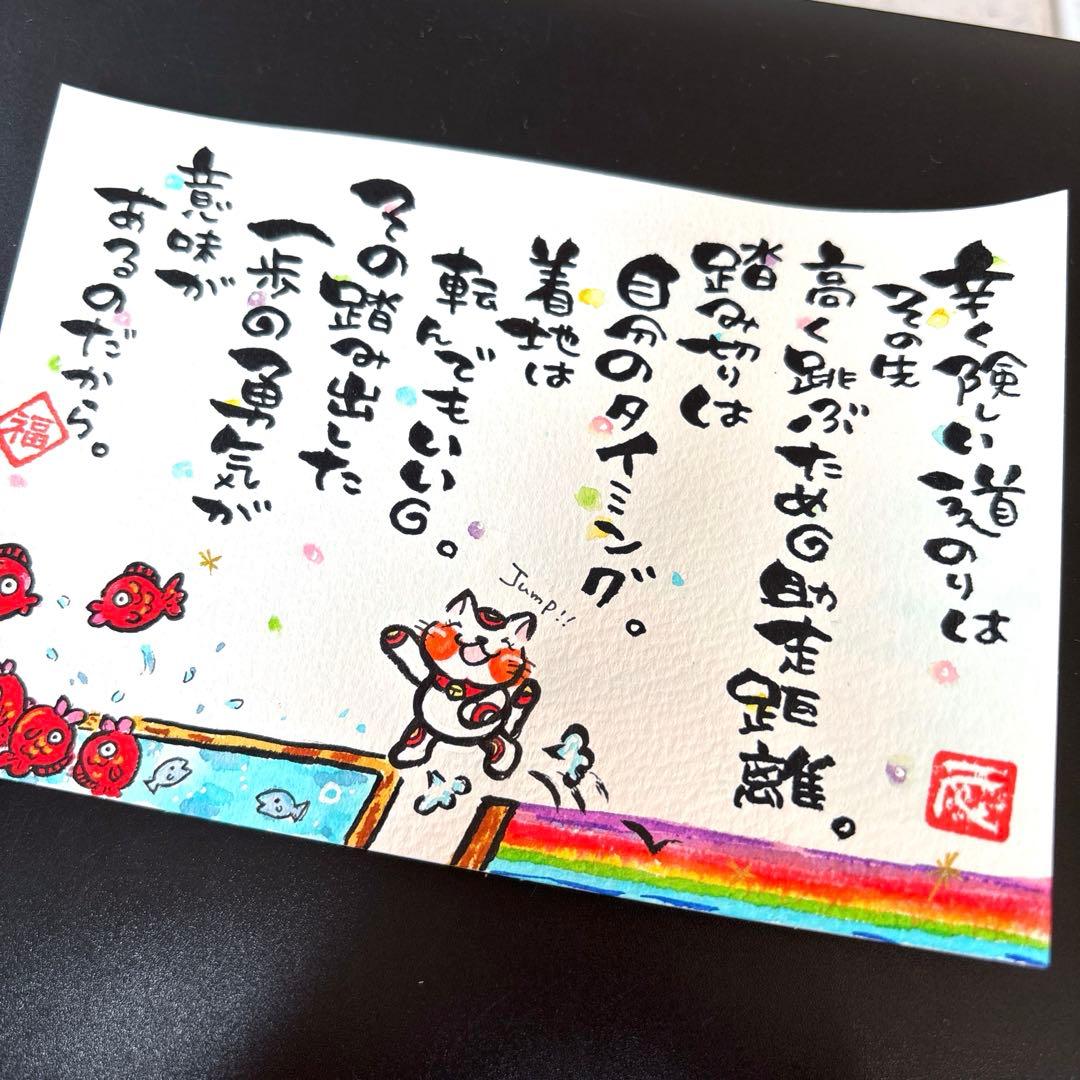 辛く険しい道のりは
その先
高く跳ぶための助走距離。
踏み切りは
自分のタイミング。
着地は
転んでもいいの。
その踏み出した
一歩の勇気が
意味が
あるのだから。
福
Jump!!